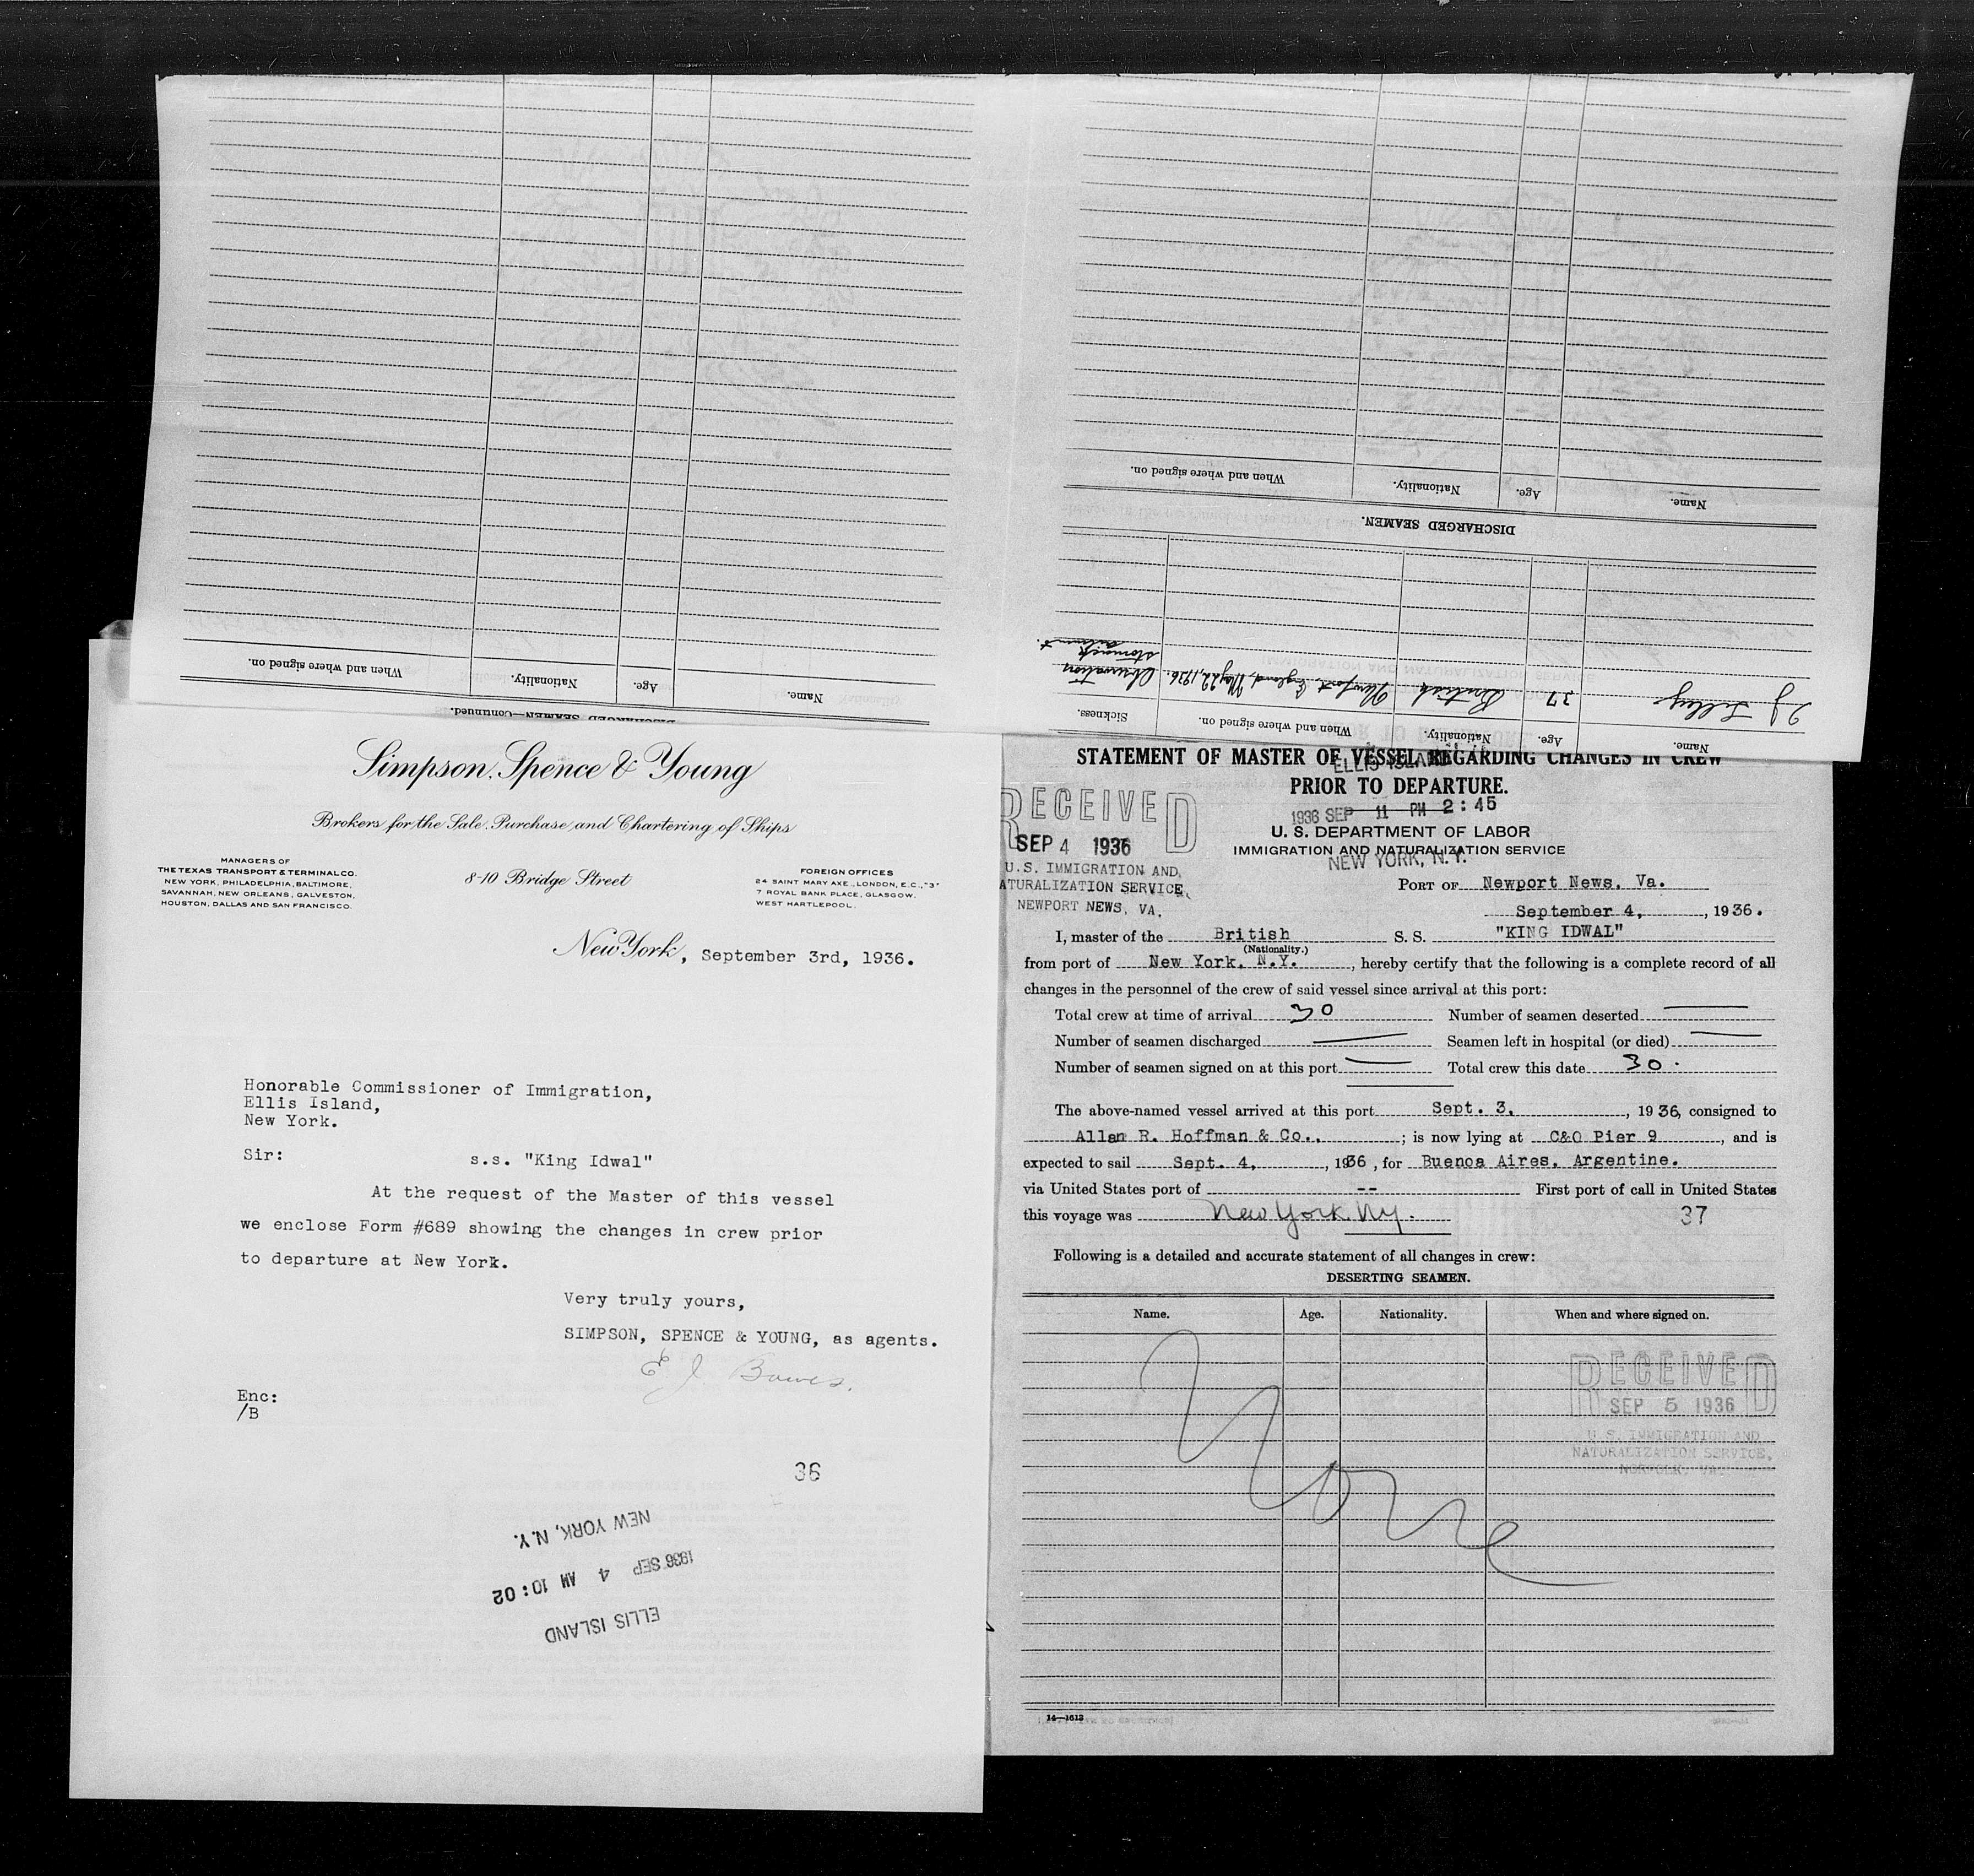 Name. Age. Nationality. When and where signed on. Sickness.
37 British Newport, England, May 22, 1936. Observation
stomach
DISCHARGED SEAMEN.
Name. Age. Nationality. When and where signed on.
DISCHARGED SEAMEN—Continued.
Name. Age. Nationality. When and where signed on.
Simpson, Spence & Young
Brokers for the Sale, Purchase and Chartering of Ships
MANAGERS OF
THE TEXAS TRANSPORT & TERMINAL CO.
NEW YORK, PHILADELPHIA, BALTIMORE,
SAVANNAH, NEW ORLEANS, GALVESTON,
HOUSTON, DALLAS AND SAN FRANCISCO.
8-10 Bridge Street
FOREIGN OFFICES
24 SAINT MARY AXE, LONDON, E.C., "3"
7 ROYAL BANK PLACE, GLASGOW.
WEST HARTLEPOOL.
New York, September 3rd, 1936.
Honorable Commissioner of Immigration,
Ellis Island,
New York.
Sir: s.s. "King Idwal"
At the request of the Master of this vessel
we enclose Form #689 showing the changes in crew prior
to departure at New York.
Very truly yours,
SIMPSON, SPENCE & YOUNG, as agents.
E J Bowes.
Enc:
/B
36
NEW YORK, N.Y.
1936 SEP 4 AM 10:02
ELLIS ISLAND
STATEMENT OF MASTER OF VESSEL REGARDING CHANGES IN CREW
ELLIS ISLAND
PRIOR TO DEPARTURE.
1936 SEP 11 PM 2:45
U. S. DEPARTMENT OF LABOR
IMMIGRATION AND NATURALIZATION SERVICE
NEW YORK, N.Y.
RECEIVED
SEP 4 1936
U.S. IMMIGRATION AND
NATURALIZATION SERVICE,
NEWPORT NEWS, VA.
PORT OF Newport News, Va.
September 4, , 1936.
I, master of the British S. S. "KING IDWAL"
(Nationality.)
from port of New York, N.Y. , hereby certify that the following is a complete record of all
changes in the personnel of the crew of said vessel since arrival at this port:
Total crew at time of arrival 30 Number of seamen deserted —
Number of seamen discharged — Seamen left in hospital (or died) —
Number of seamen signed on at this port — Total crew this date 30.
The above-named vessel arrived at this port Sept. 3, , 1936, consigned to
Allan R. Hoffman & Co., ; is now lying at C&O Pier 9 , and is
expected to sail Sept. 4, , 1936 , for Buenos Aires, Argentine.
via United States port of -- First port of call in United States
this voyage was New York, NY. 37
Following is a detailed and accurate statement of all changes in crew:
DESERTING SEAMEN.
Name. Age. Nationality. When and where signed on.
None
RECEIVED
SEP 5 1936
U.S. IMMIGRATION AND
NATURALIZATION SERVICE,
NORFOLK, VA.
14—1613